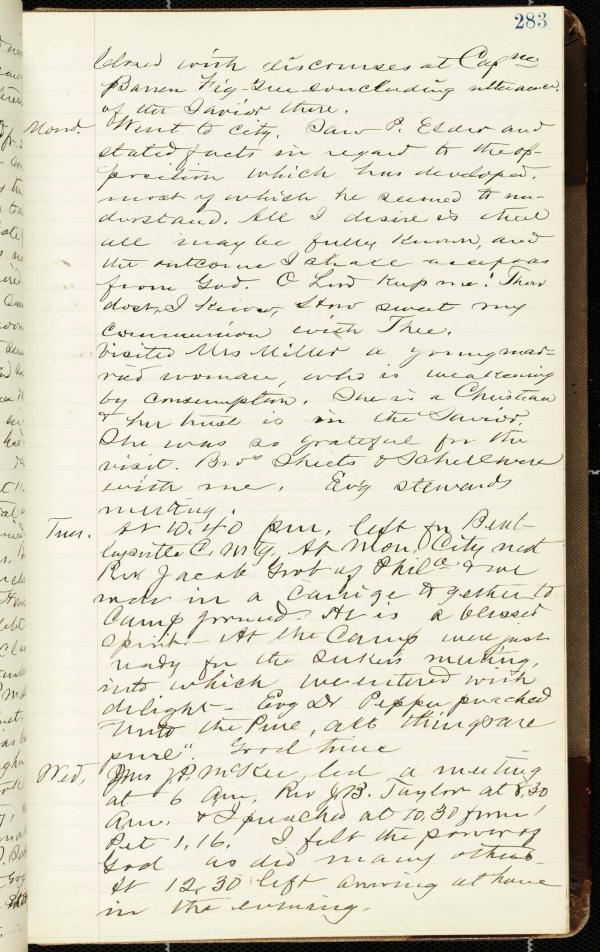 283
with discourses at Cap.na
Barren Fig-Tree concluding utterances
of the Savior there.
Mond. Went to city. Saw P. Elder and
stated facts in regard to the op-
position which has developed.
most of which he seemed to un-
derstand. All I desire is that
all may be fully known, and
the outcome I shall accept as
from God. O Lord keep me! Thou
dost, I know, How sweet my
communion with Thee.
Visited Mrs Miller a young mar-
ried woman, who is weakening
by consumption. She is a Christian
& her trust is in the Savior.
She was so grateful for the
visit. Bros Sheets & Schell were
with me. Ev'g stewards
meeting.
Tues. At 10.40 pm, left for
C. M'g. At Mon. City met
Rev Jacob of Phila & we
in a carriage together to
Camp ground. He is a blessed
spirit. At the Camp were just
ready for the seekers meeting,
into which we entered with
delight - Evg Dr Pepper preached
"Unto the Pure, all things are
pure". Good time
Wed, Mrs J.P. McKee, led a meeting
at 6 am, Rev J.B. Taylor at 8,30
am. & I preached at 10,30 from 1
Pet 1,16. I felt the power of
God as did many others.
At 12,30 left arriving at home
in the evening.